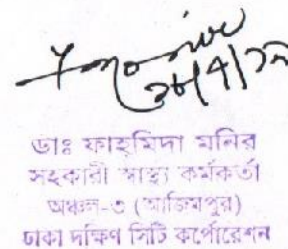 ২৮/৭/১৯
ডাঃ ফাহ্‌মিদা মনির
সহকারী স্বাস্থ্য কর্মকর্তা
অঞ্চল-৩ (আজিমপুর)
ঢাকা দক্ষিণ সিটি কর্পোরেশন